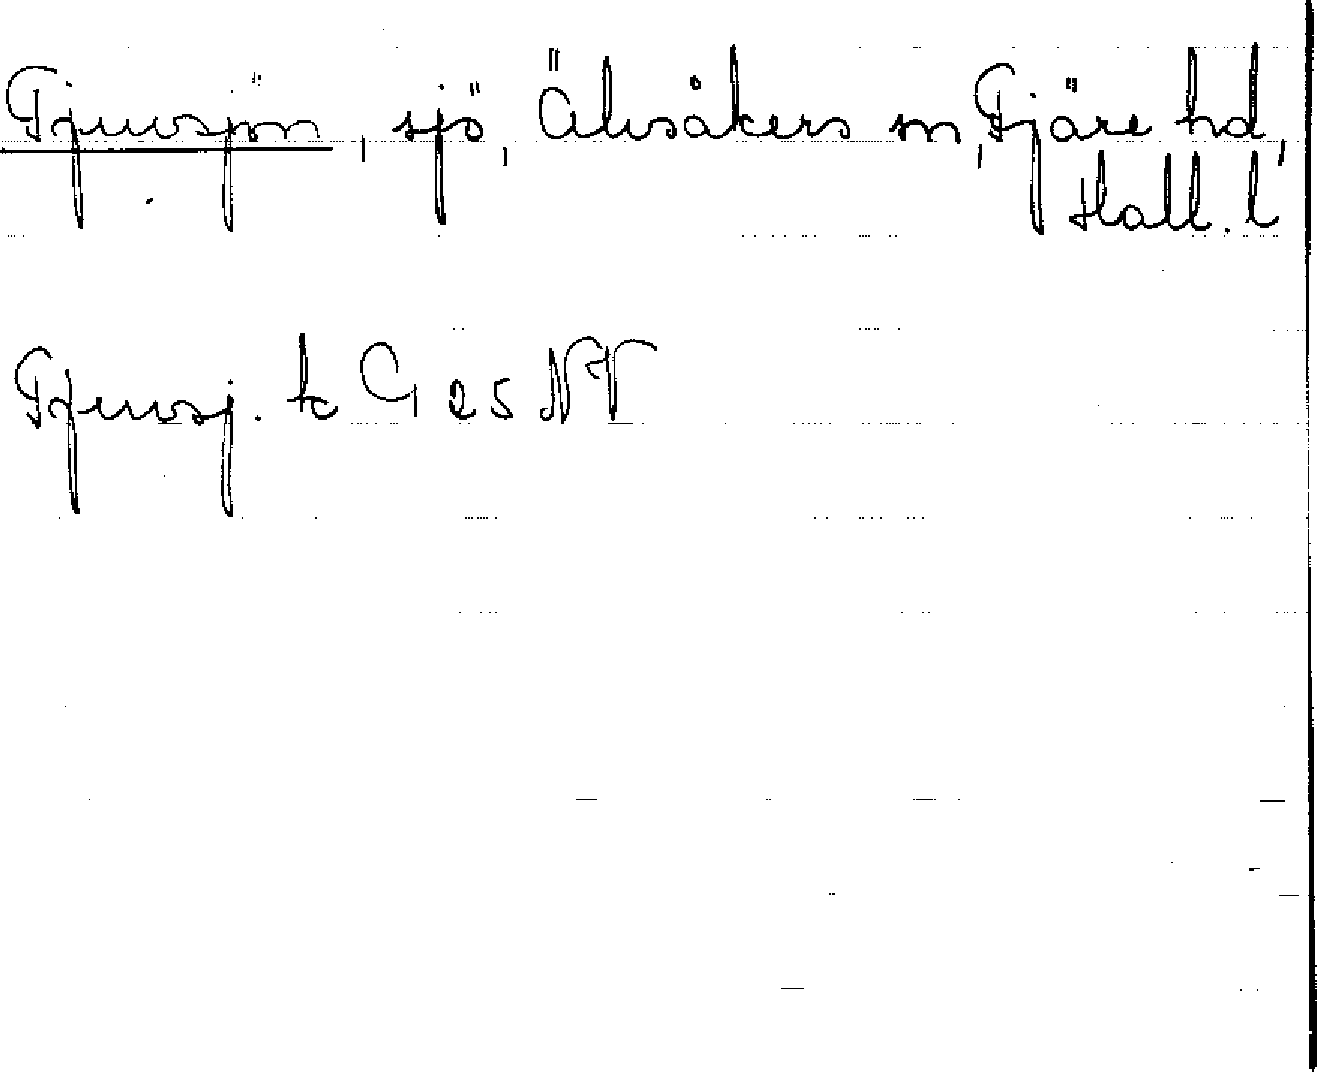 Fjuvsjön, sjö, Älvsåkers sn, Fjäre hd,
Hall. l
Fjuvsj. tc G 25 NV